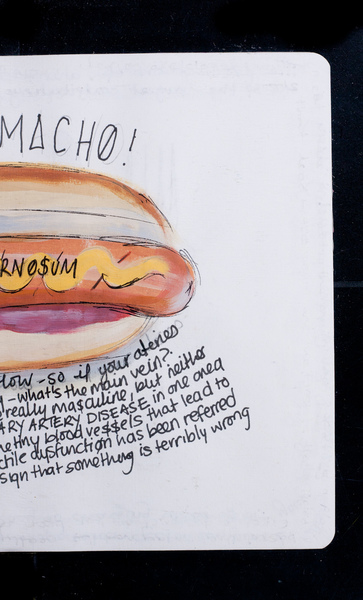 MACHO!
RNO$UM
low - so if your ateries
- what's the main vein?.
really ma$culine, but neither
ARY ARTERY DISEASE in one area
tiny blood ve$$els that lead to
ctile dysfunction has been referred
sign that something is terribly wrong